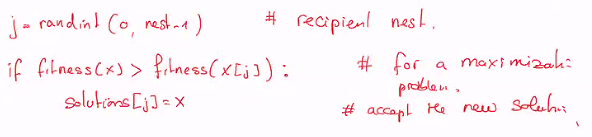 j = randint (0, nest-1) # recipient nest.
if fitness(x) > fitness(x[j]) : # for a maximizati
problem.
solutions[j] = x # accept the new soluti